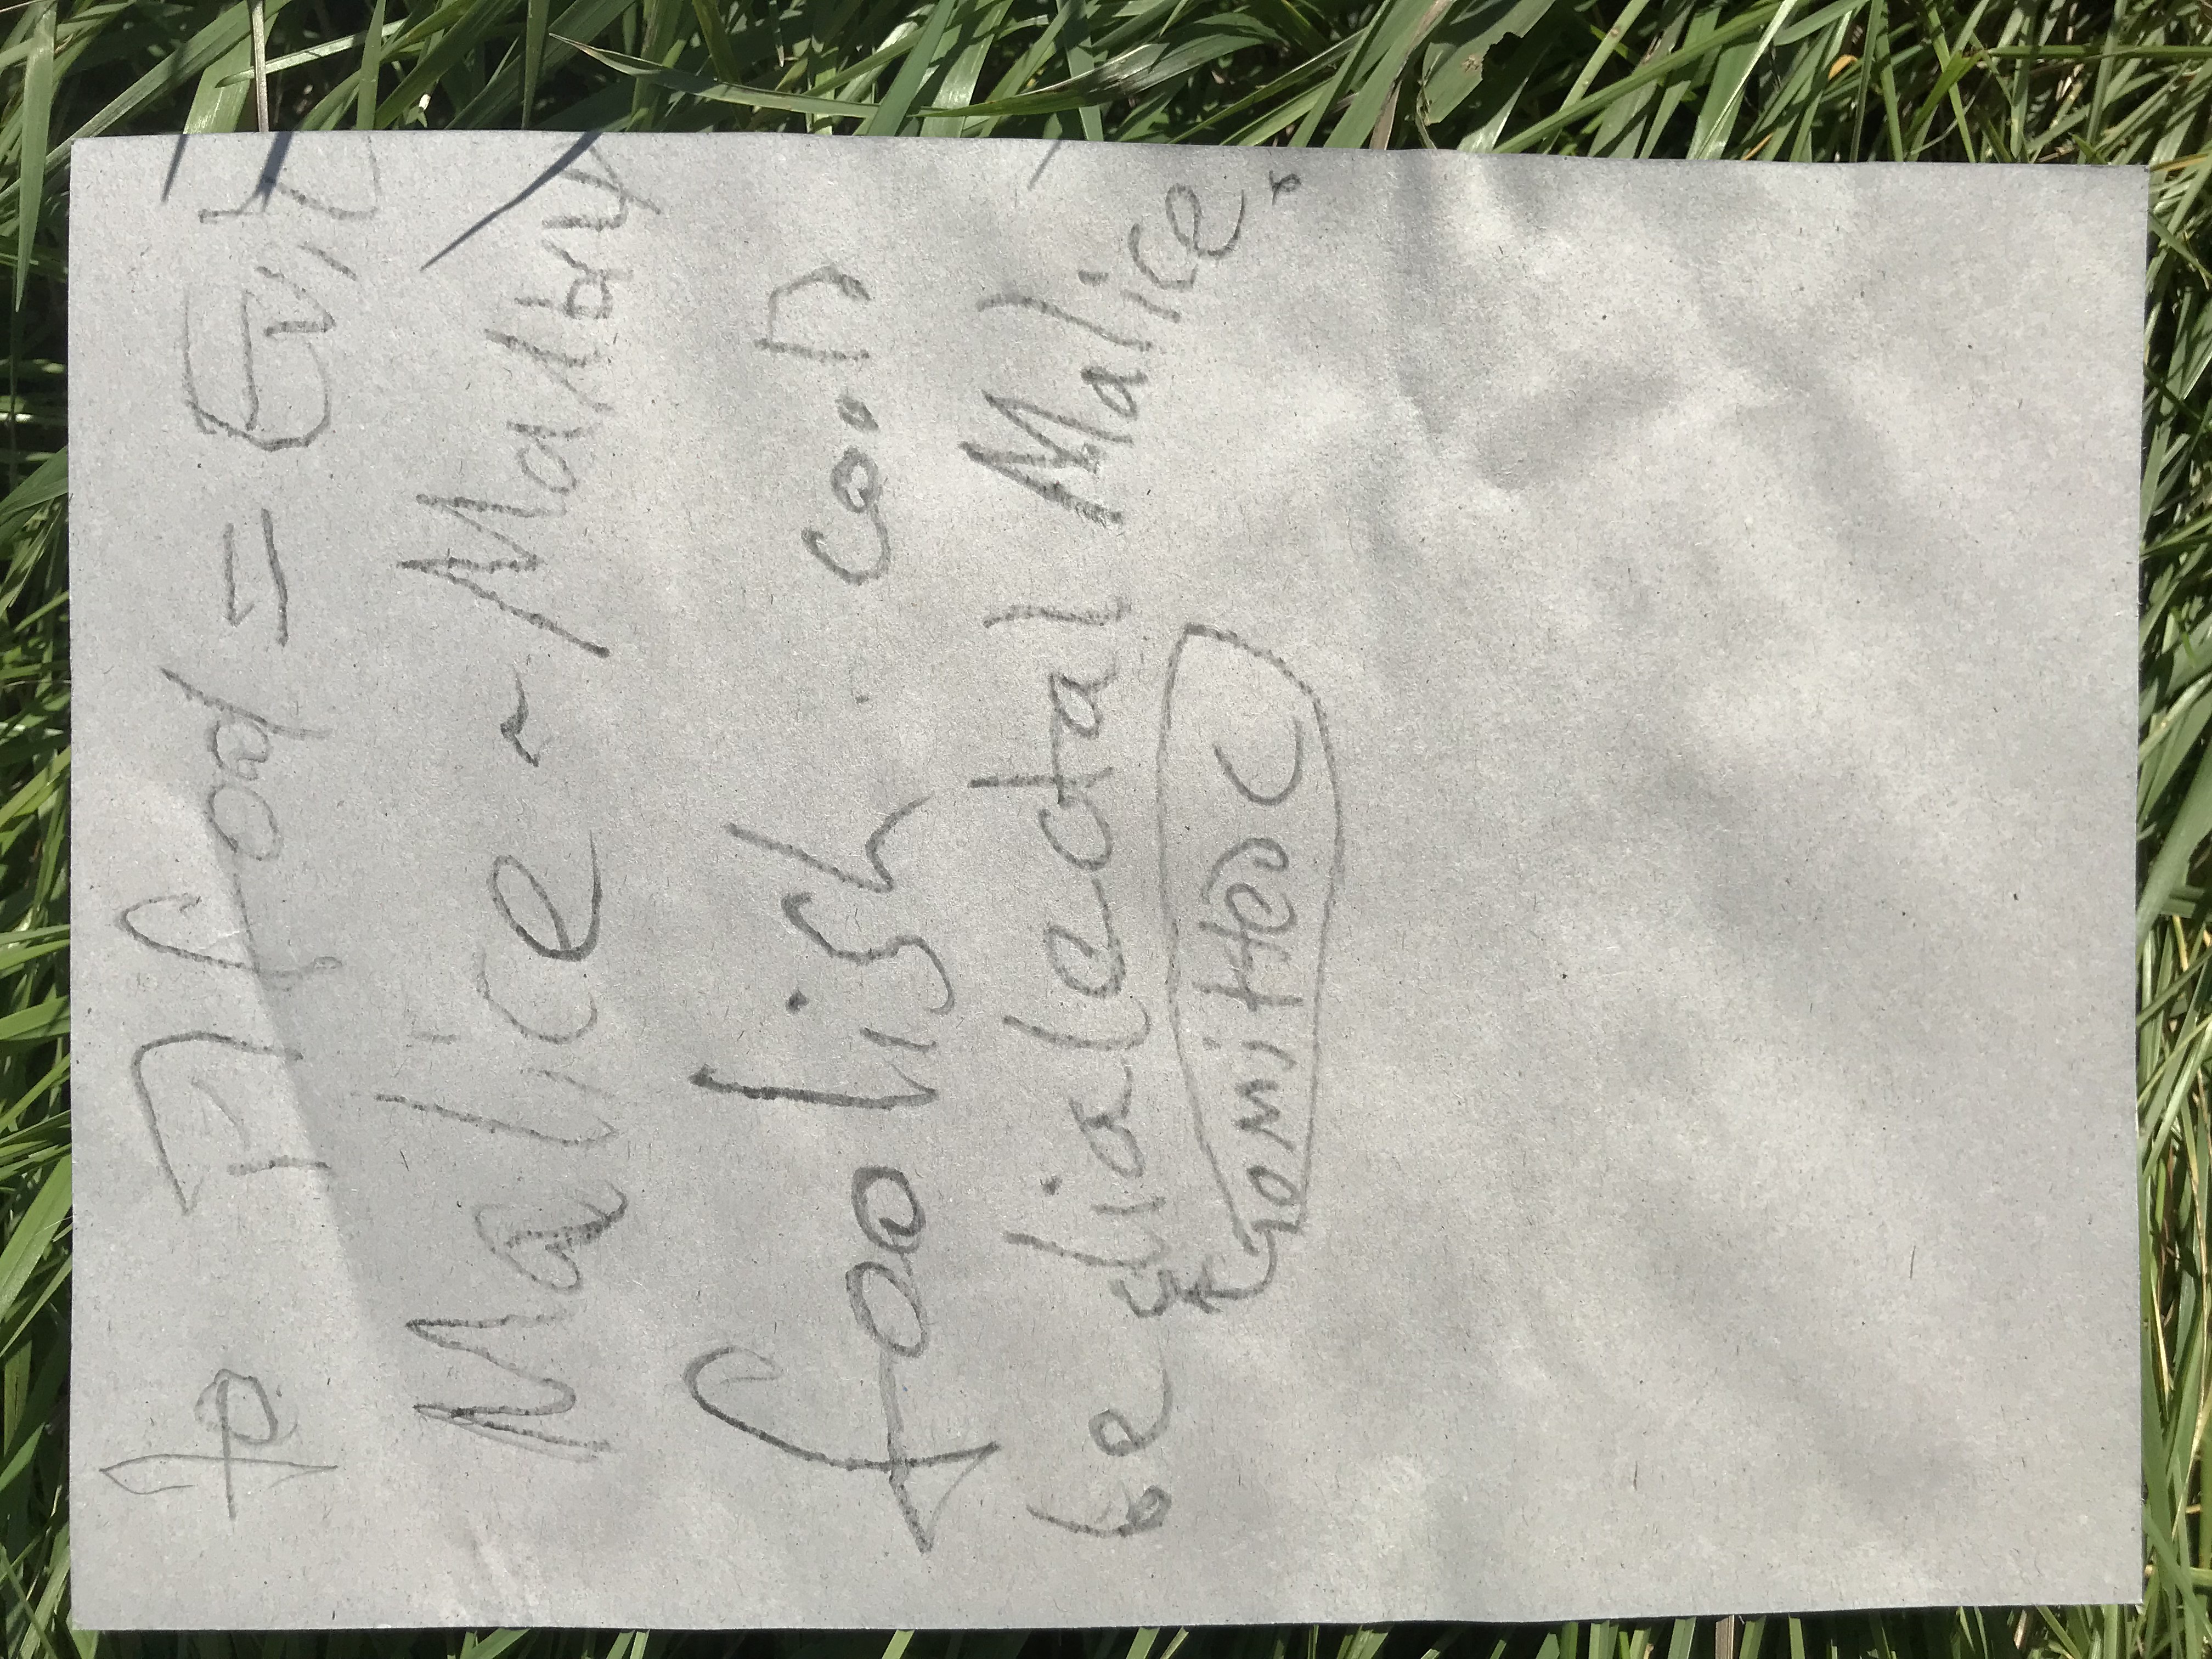 to food = Evil
Malice ~
foolish. could
be dialectal Malice.
omitted C